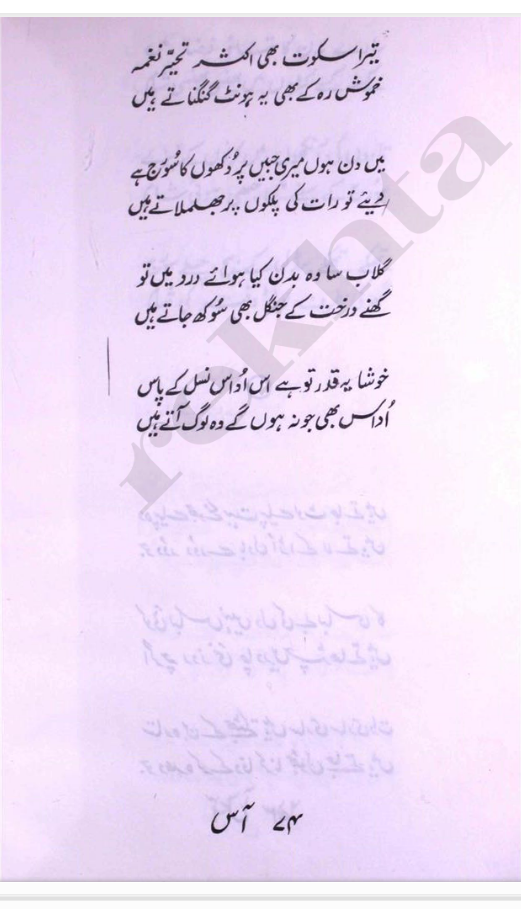 تیرا سکوت بھی اکثر تحیّر نغمہ
خموش رہ کے بھی یہ ہونٹ گنگناتے ہیں
میں دن ہوں میری جبیں پر دُکھوں کا سُورج ہے
دیئے تو رات کی پلکوں پر جھلملاتے ہیں
گلاب سا وہ بدن کیا ہوائے درد میں تو
گھنے درخت کے جنگل بھی سُوکھ جاتے ہیں
خوشا یہ قدر تو ہے اس اُداس نسل کے پاس
اُداس بھی جو نہ ہوں گے وہ لوگ آتے ہیں
rekhta
۷۴ آس